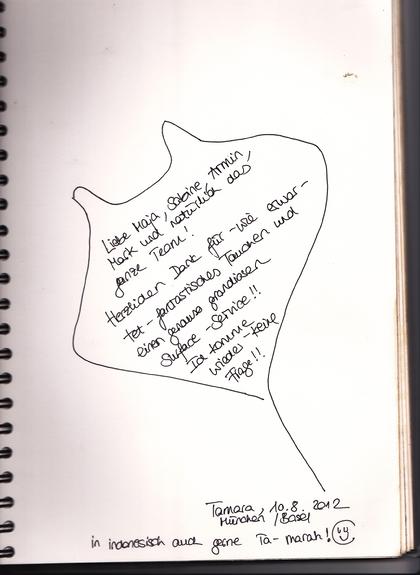 Liebe Maja, Sabine, Armin,
Mark und natürlich das
ganze Team!
Herzlichen Dank für - wie erwar-
tet - fantastisches Tauchen und
einen genauso grandiosen
Surface - Service!!
Ich komme
wieder - keine
Frage!!
Tamara, 10.8. 2012
München / Basel
in indonesisch auch gerne Ta-marah!